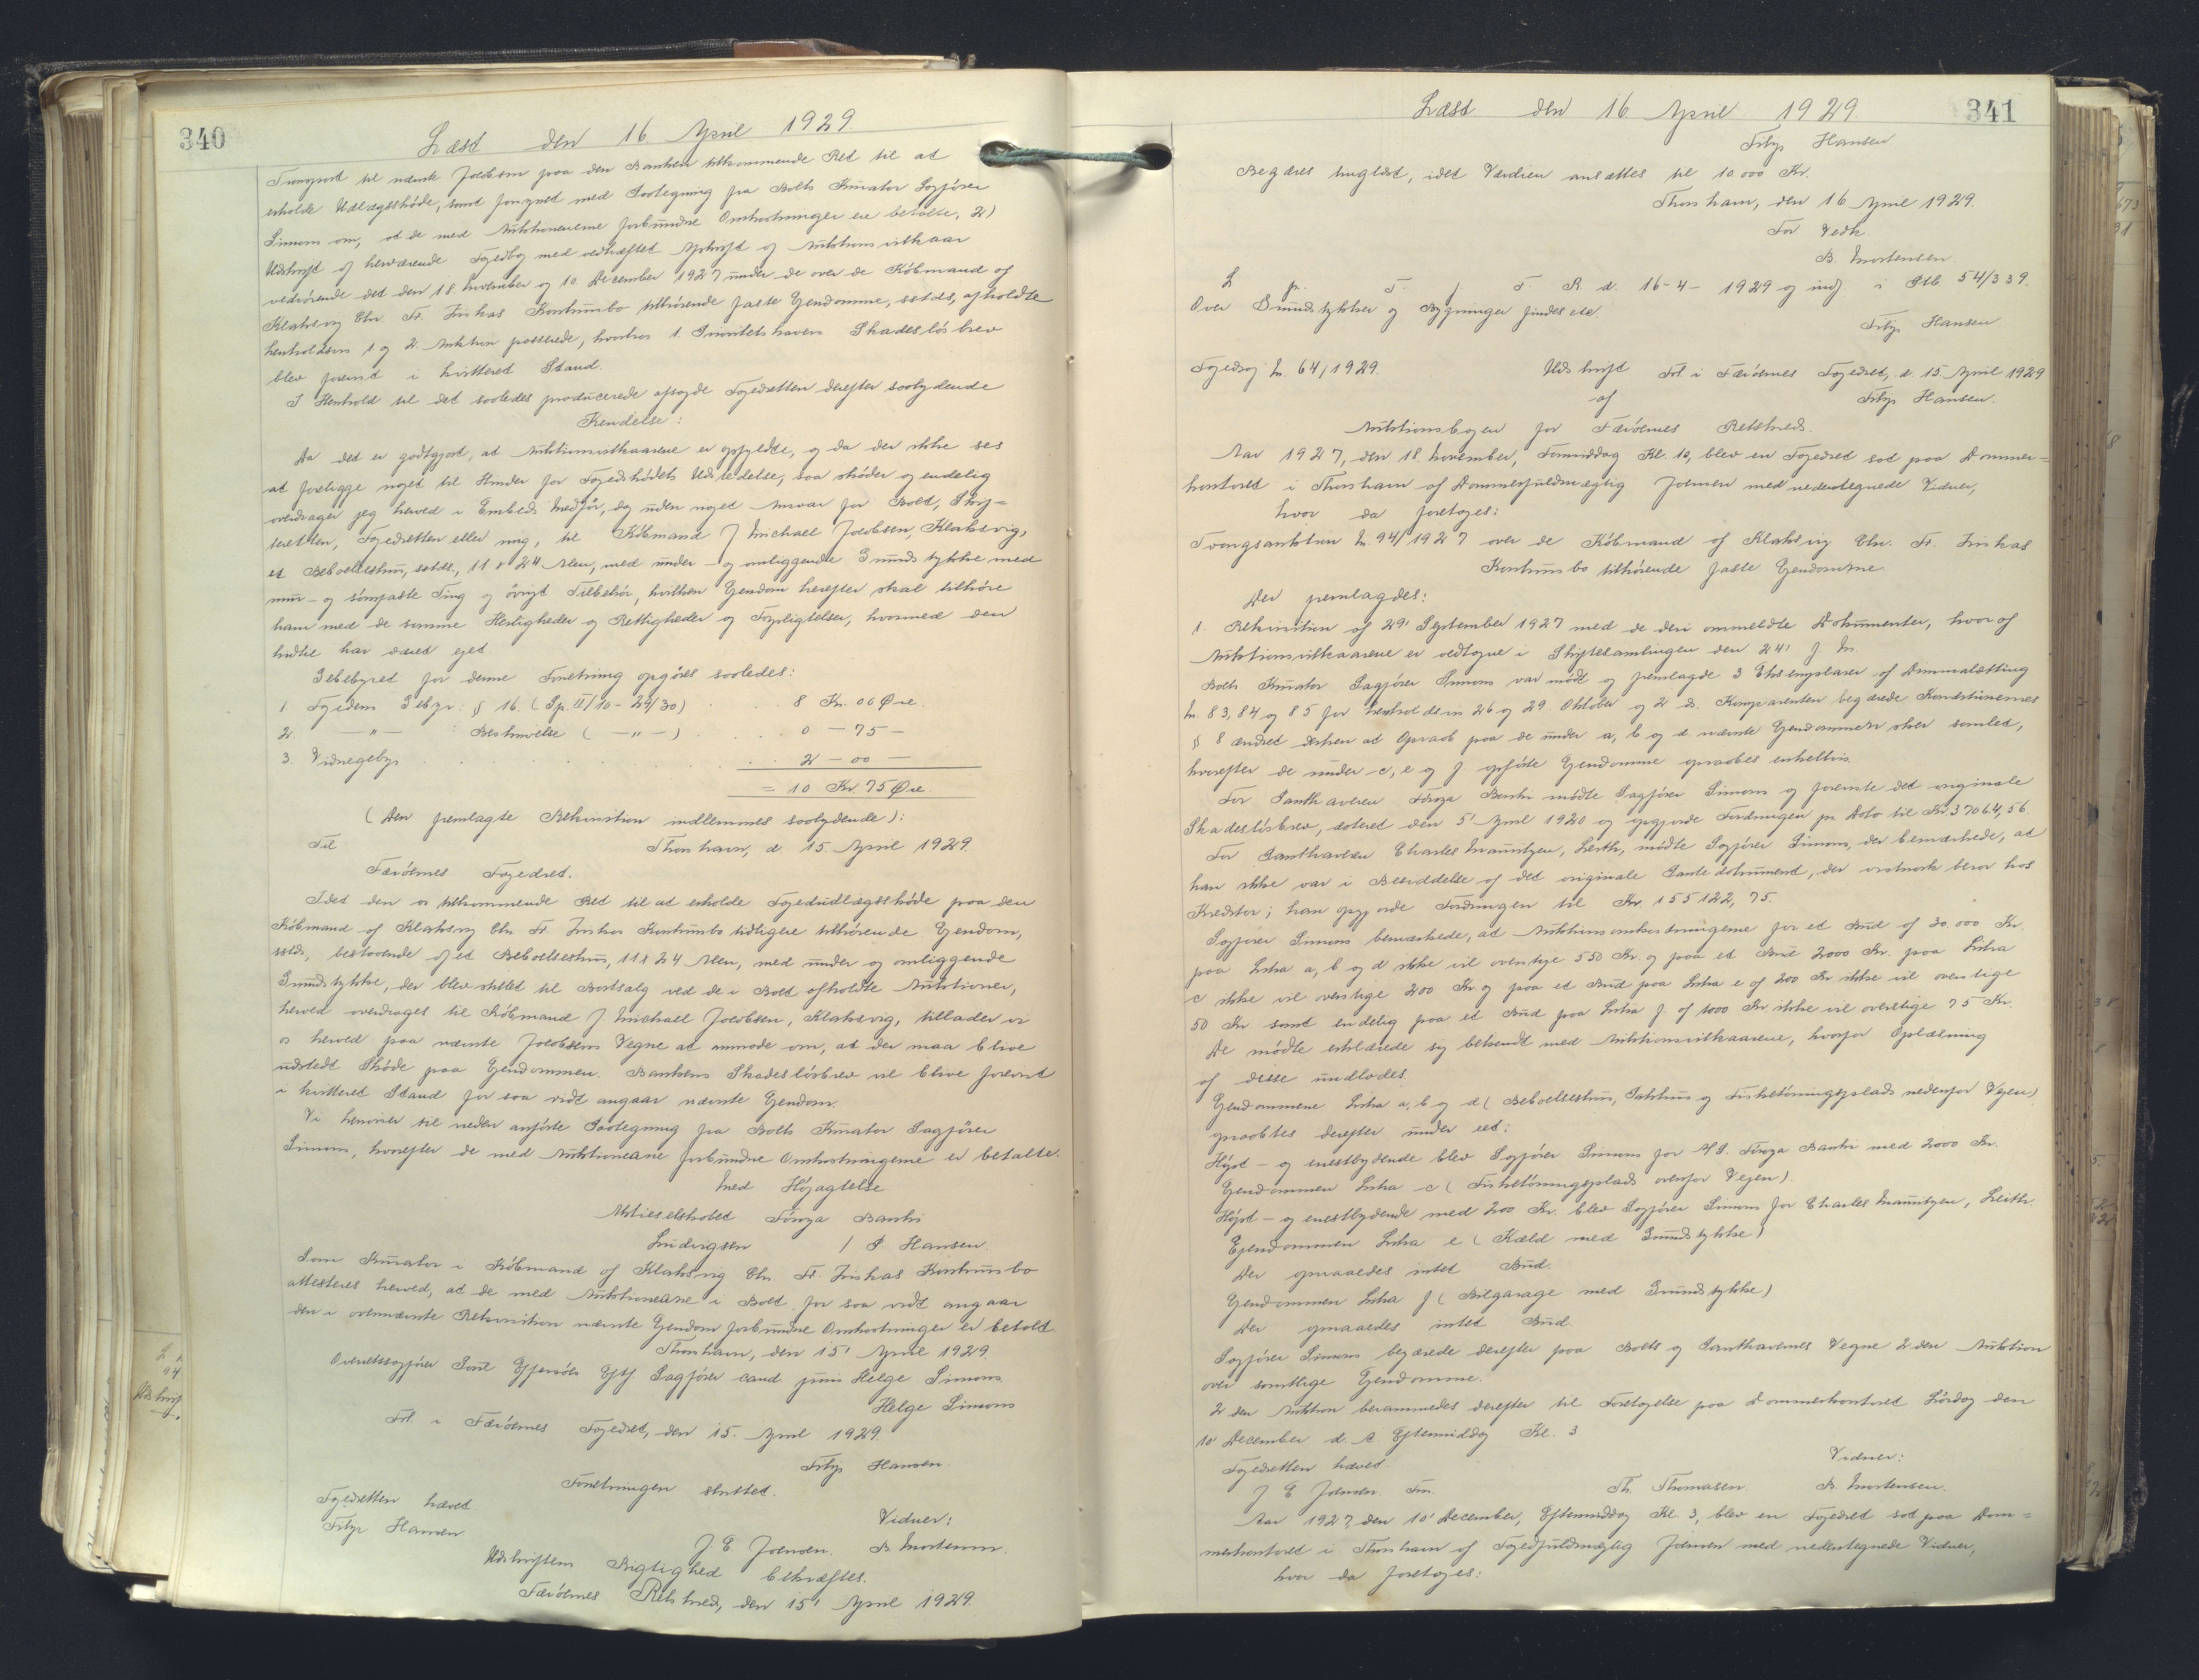 340
Læst den 16. April 1929.
Transport til nævnte Jacobsen paa den Banken tilkommende Ret til at
erholde Udlægsskøde, samt forsynet med Paategning fra Boets Kurator Sagfører
Simons om, at de med Auktionerne forbundne Omkostninger ere betalte, 2)
Udskrift af herværende Fogedbog med vedhæftet Afskrift af Auktionsvilkaar
vedrørende det den 18. November og 10. December 1927 under de over de Købmand af
Klaksvig Chr. Fr. Jinkas Konkursbo tilhørende faste Ejendomme, sstds, afholdte
henholdsvis 1 og 2. Auktion passerede, hvorhos 1. Prioritetshavers Skadesløsbrev
blev forevist i kvitteret Stand.
I Henhold til det saaledes producerede afsagde Fogedretten derefter saalydende
Kendelse:
Da det er godtgjort, at Auktionsvilkaarene er opfyldte, og da der ikke ses
at foreligge noget til Hinder for Fogedskødets Udstedelse, saa skøder og endelig
overdrager jeg herved i Embeds Medfør, dog uden noget Ansvar for Boet, Skif-
teretten, Fogedretten eller mig, til Købmand J. Michael Jacobsen, Klaksvig,
et Beboelseshus, sstds., 11 x 24 Alen, med under- og omliggende Grundstykke med
mur- og sømfaste Ting og øvrigt Tilbehør, hvilken Ejendom herefter skal tilhøre
ham med de samme Herligheder og Rettigheder og Forpligtelser, hvormed den
hidtil har været ejet.
Gebebyret for denne Forretning opgøres saaledes:
1. Fogedens Gebyr: § 16. (Sp. II/10 - 29/30) . . 8 Kr. 00 Øre.
2. — " — : Beskrivelse ( — " — ) . . . 0 — 75 —
3. Vidnegebyr . . . . . . . 2 — 00 —
= 10 Kr. 75 Øre.
(Den fremlagte Rekvisition indlemmes saalydende):
Til Thorshavn, d. 15. April 1929.
Færøernes Fogedret.
Idet den os tilkommende Ret til at erholde Fogedudlægsskøde paa den
Købmand af Klaksvig Chr. Fr. Jinkas Konkursbo tidligere tilhørende Ejendom,
sstds, bestaaende af et Beboelseshus, 11 x 24 Alen, med under og omliggende
Grundstykke, der blev stillet til Bortsalg ved de i Boet afholdte Auktioner,
herved overdrages til Købmand J. Michael Jacobsen, Klaksvig, tillader vi
os herved paa nævnte Jacobsens Vegne at anmode om, at der maa blive
udstedt Skøde paa Ejendommen. Bankens Skadesløsbrev vil blive forevist
i kvitteret Stand for saa vidt angaar nævnte Ejendom.
Vi henviser til neden anførte Paategning fra Boets Kurator Sagfører
Simons, hvorefter de med Auktionerne forbundne Omkostningerne er betalte.
Med Højagtelse
Aktieselskabet Føroya Banki
Ludvigsen / P. Hansen.
Som Kurator i Købmand af Klaksvig Chr. Fr. Jinkas Konkursbo
attesteres herved, at de med Auktionerne i Boet for saa vidt angaar
den i ovennævnte Rekvisition nævnte Ejendom forbundne Omkostninger er betalt.
Thorshavn, den 15' April 1929.
Overretssagfører Poul Effersøes Eftf. Sagfører cand. juris Helge Simons.
Helge Simons
Frl. i Færøernes Fogedret, den 15. April 1929.
Filip Hansen
Forretningen sluttet.
Fogedretten hævet. Vidner:
Filip Hansen J. E. Joensen. B. Mortensen.
Udskriftens Rigtighed bekræftes.
Færøernes Retskreds, den 15' April 1929.
341
Læst den 16 April 1929.
Filip Hansen
Begæres tinglæst, idet Værdien ansættes til 10.000 Kr.
Thorshavn, den 16 April 1929.
For Vedk.
B. Mortensen.
L p. T. f. F. R. d. 16-4-1929 og indf. i Ptb. 54/339.
Over Grundstykker og Bygninger findes ikke.
Filip Hansen
Fogedsag Nr. 64/1929. Udskrift Frl. i Færøernes Fogedret, d. 15. April 1929
af Filip Hansen.
Auktionsbogen for Færøernes Retskreds.
Aar 1927, den 18. November, Formiddag Kl. 10, blev en Fogedret sat paa Dommer=
kontoret i Thorshavn af Dommerfuldmægtig Joensen med nedentegnede Vidner,
hvor da foretoges:
Tvangsauktion Nr. 94/1927 over de Købmand af Klaksvig Chr. Fr. Jinkas
Konkursbo tilhørende faste Ejendomme.
Der fremlagdes:
1. Rekvisition af 29' September 1927 med de deri ommeldte Dokumenter, hvoraf
Auktionsvilkaarene er vedtagne i Skiftesamlingen den 24' f. M.
Boets Kurator Sagfører Simons var mødt og fremlagde 3 Eksemplarer af Dimmalætting
Nr. 83, 84 og 85 for henholdsvis 26 og 29 Oktober og 2 ds. Komparenten begærede Konditionernes
§ 8 ændret derhen at Opraab paa de under a, b og d nævnte Ejendommen sker samlet,
hvorefter de under c, e og f opførte Ejendomme opraabes enkeltvis.
For Panthaveren Føroya Banki mødte Sagfører Simons og foreviste det originale
Skadesløsbrev, dateret den 5' April 1920 og opgjorde Fordringen pr. Dato til Kr. 37064,56.
For Panthaveren Charles Mauritzen, Leith, mødte Sagfører Simons, der bemærkede, at
han ikke var i Besiddelse af det originale Pantedokument, der vistnok beror hos
Kreditor; han opgjorde Fordringen til Kr. 155122,75.
Sagfører Simons bemærkede, at Auktionsomkostningerne for et Bud af 30.000 Kr.
paa Litra a, b og d ikke vil overstige 550 Kr. og paa et Bud 2000 Kr. paa Litra
c ikke vil overstige 200 Kr. og paa et Bud paa Litra e af 200 Kr. ikke vil overstige
50 Kr. samt endelig paa et Bud paa Litra f. af 1000 Kr. ikke vil overstige 75 Kr.
De mødte erklærede sig bekendt med Auktionsvilkaarene, hvorfor Oplæsning
af disse undlodes.
Ejendommene Litra a, b og d (Beboelseshus, Pakhus og Fisketørringsplads nedenfor Vejen)
opraabtes derefter under eet:
Højst- og enestbydende blev Sagfører Simons for A/S. Føroya Banki med 2000 Kr.
Ejendommen Litra c (Fisketørringsplads ovenfor Vejen).
Højst- og enestbydende med 200 Kr. blev Sagfører Simons for Charles Mauritzen, Leith.
Ejendommen Litra e (Kæld med Grundstykke)
Der opnaaedes intet Bud.
Ejendommen Litra f (Bilgarage med Grundstykke)
Der opnaaedes intet Bud.
Sagfører Simons begærede derefter paa Boets og Panthavernes Vegne 2den Auktion
over samtlige Ejendomme.
2den Auktion berammedes derefter til Foretagelse paa Dommerkontoret Lørdag den
10' December d. A. Eftermiddag Kl. 3
Fogedretten hævet. Vidner:
J. E. Joensen. Fm. Th. Thomasen. B. Mortensen.
Aar 1927, den 10' December, Eftermiddag Kl. 3, blev en Fogedret sat paa Dom=
merkontoret i Thorshavn af Fogedfuldmægtig Joensen med nedentegnede Vidner,
hvor da foretoges: